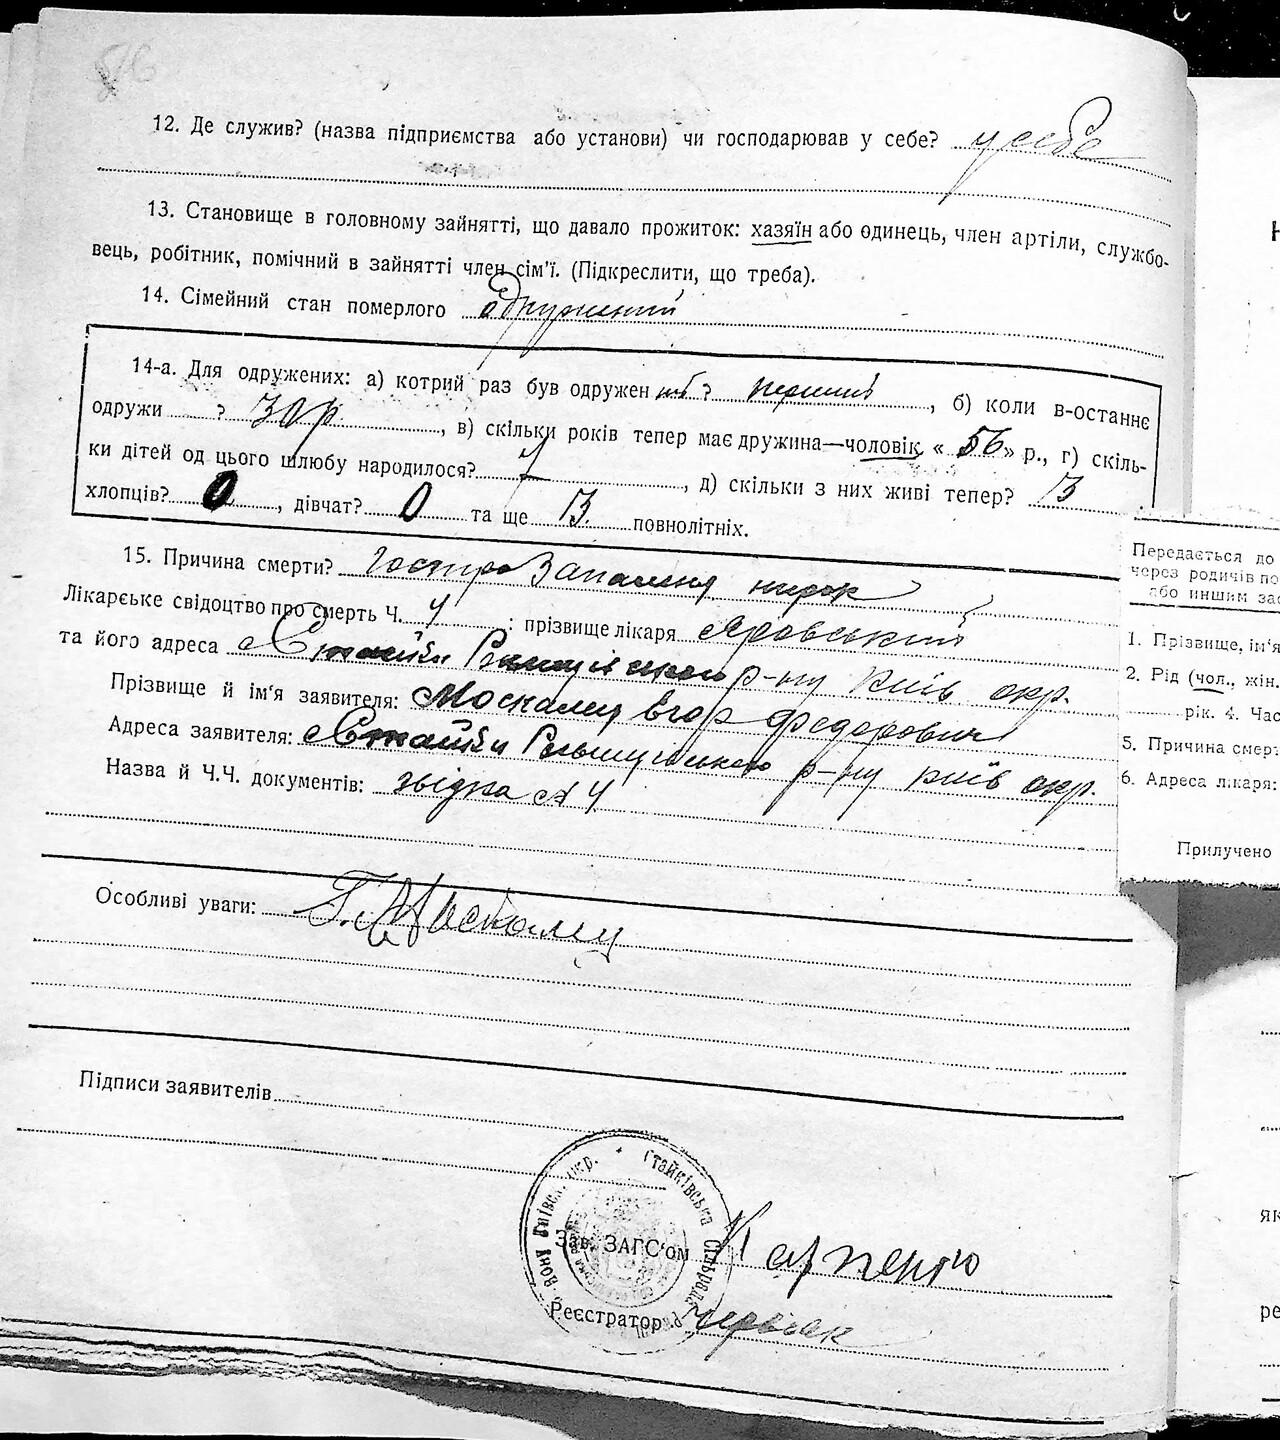 86
12. Де служив? (назва підприємства або установи) чи господарював у себе? у себе
13. Становище в головному зайнятті, що давало прожиток: хазяїн або одинець, член артіли, службо-
вець, робітник, помічний в зайнятті член сім'ї. (Підкреслити, що треба).
14. Сімейний стан померлого одружений
14-а. Для одружених: а) котрий раз був одружен ? перший, б) коли в-останнє
одружи ? 30 р., в) скільки років тепер має дружина—чоловік « 56 » р., г) скіль-
ки дітей од цього шлюбу народилося? 7, д) скільки з них живі тепер? 3
хлопців? 0, дівчат? 0 та ще 3 повнолітніх.
15. Причина смерти? Гостро Запалення нирок
Лікарське свідоцтво про смерть Ч. 4 : прізвище лікаря Яровський
та його адреса с Стайки р-ну Київ окр.
Прізвище й ім'я заявителя: Москалец Єгор Федорович
Адреса заявителя: с Стайки р-ну Київ окр.
Назва й Ч.Ч. документів: звідка № 4
Особливі уваги: Москалец
Підписи заявителів
Стайківська Сільрада Київськ. окр.
Зав. ЗАГС'ом
Реєстратор
Передається до
через родичів по
або иншим зас
1. Прізвище, ім'я
2. Рід (чол., жін.
рік. 4. Час
5. Причина смерт
6. Адреса лікаря:
Прилучено
Н
як
ре